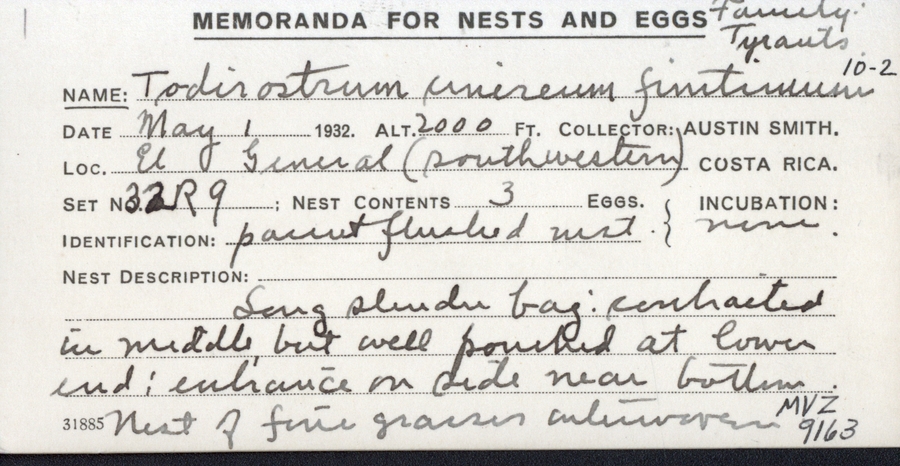 MEMORANDA FOR NESTS AND EGGS Family:
Tyrants
10-2
NAME: Todirostrum cinereum finitimum
DATE May 1 1932. ALT. 2000 FT. COLLECTOR: AUSTIN SMITH.
LOC. El General (southwestern) COSTA RICA.
SET No. 32R9 ; NEST CONTENTS 3 EGGS. { INCUBATION:
IDENTIFICATION: parent flushed nest. } none.
NEST DESCRIPTION:
Long slender bag: contracted
in middle, but well pouched at lower
end; entrance on side near bottom.
31885 Nest of fine grasses interwoven MVZ
9163